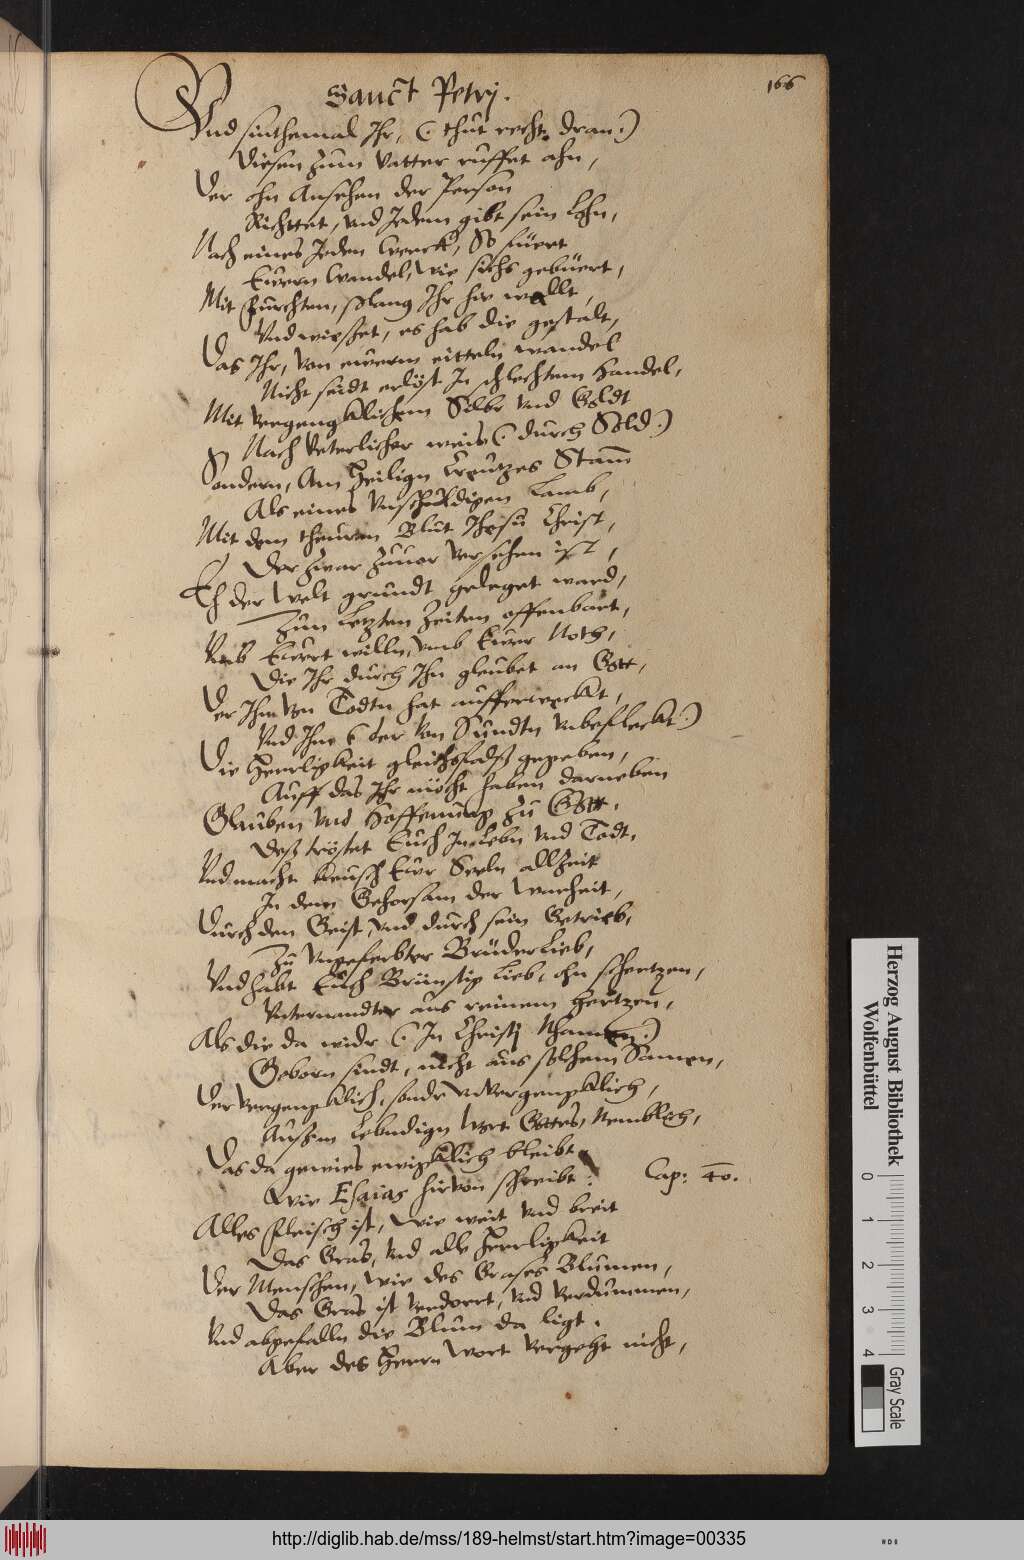 166
Sanct Petrj.
Vnd sinthemal Ihr, (: thut recht dran :)
Diesen zum Vatter ruffet ahn,
Der ohn Ansehen der Person
Richttet, vnd Jedem gibt sein Lohn,
Nach eines Jeden Werck, So füert
Ewern Wandel, wie sichs gebüert,
Mit Furchten, solang Ihr hie wallt,
Vnd wisset, es hab die gestalt,
Das Ihr, von ewerm eitteln wandel
Nicht seidt erlöst In schlechtem handel,
Mit vergengklichem Silbr vnd Goldt
Nach Veterlicher weis (: durch Sold :)
Sondern, Am heilign Creutzes Stam̄
Als eines Vnschuldigen Lamb,
Mit dem theuren Blut Ihesu Christ,
Der zwar zuuor versehen ist,
Eh der Welt grundt geleget ward,
Zum Letzten Zeiten offenbart,
Vmb Ewret willn, vmb Ewer Noth,
Die Ihr durch Ihn gleubet an Gott,
Der Ihn von Todtn hat aufferweckt,
Vnd Ihm (: der von Sündtn vnbefleckt :)
Die Herrligkeit gleichsfals gegeben,
Auff das Ihr möcht haben darneben
Glauben vnd Hoffenung zu Gott.
Deß tröstet Euch Im Lebn vnd Todt.
Vnd macht keusch Ewr Seeln allZeit
In dem Gehorsam der Warheit,
Durch den Geist, vnd durch sein Getrieb,
Zu Vngeferbter Brüder Lieb,
Vnd habt Euch Brünstig Lieb, ohn schertzen,
Vnternandter aus reinem Hertzen,
Als die da widr (: In Christj Nhamen :)
Geborn sindt, nicht aus solchem Samen,
Der vergengklich, sondr vnvergengklich,
Aussm Lebndign Wort Gottes, Nemblich,
Das da gewies ewigklich bleibt
Wie Esaias hirvon schreibt: Cap: 40.
Alles fleisch ist, wie weit vnd breit
Das Gras, vnd alle Herrligkeit
Der Menschen, wie des Grases Blumen,
Das Gras ist verdorrt, vnd verdummen,
Vnd abgefalln die Blum da ligt.
Aber des Herrn Wort vergeht nicht,
Herzog August Bibliothek
Wolfenbüttel
0 1 2 3 4
Gray Scale
http://diglib.hab.de/mss/189-helmst/start.htm?image=00335